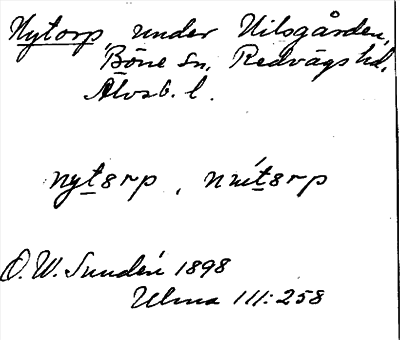 Nytorp, under Nilsgården,
Böne Sn, Redvägs hd,
Älvsb. l.
nyt8rp, nuít8rp
O.W. Sundén 1898
Ulma 111:258